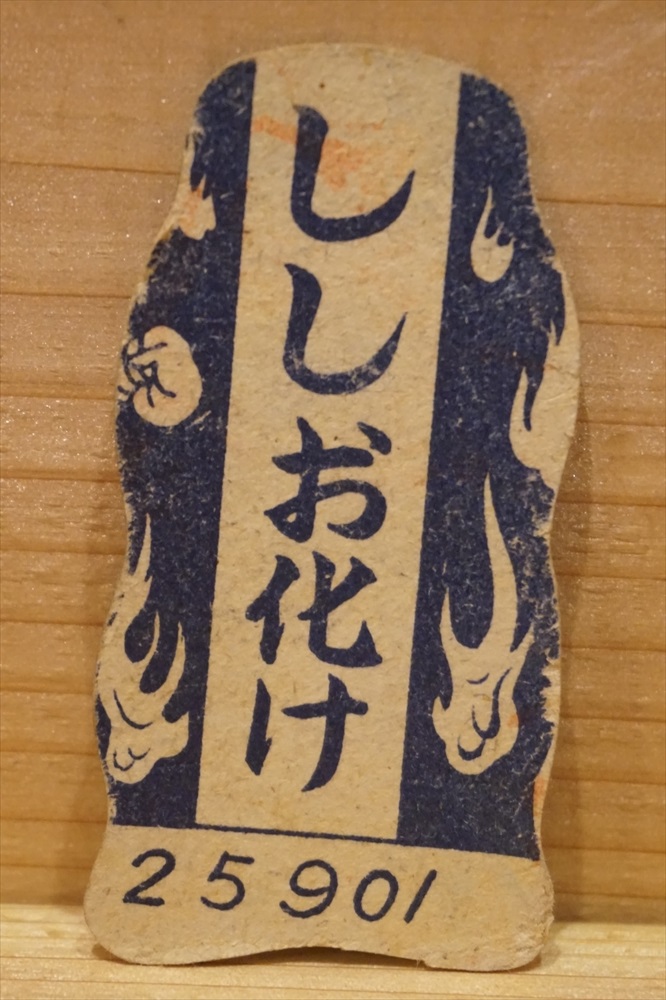 ししお化け
25901